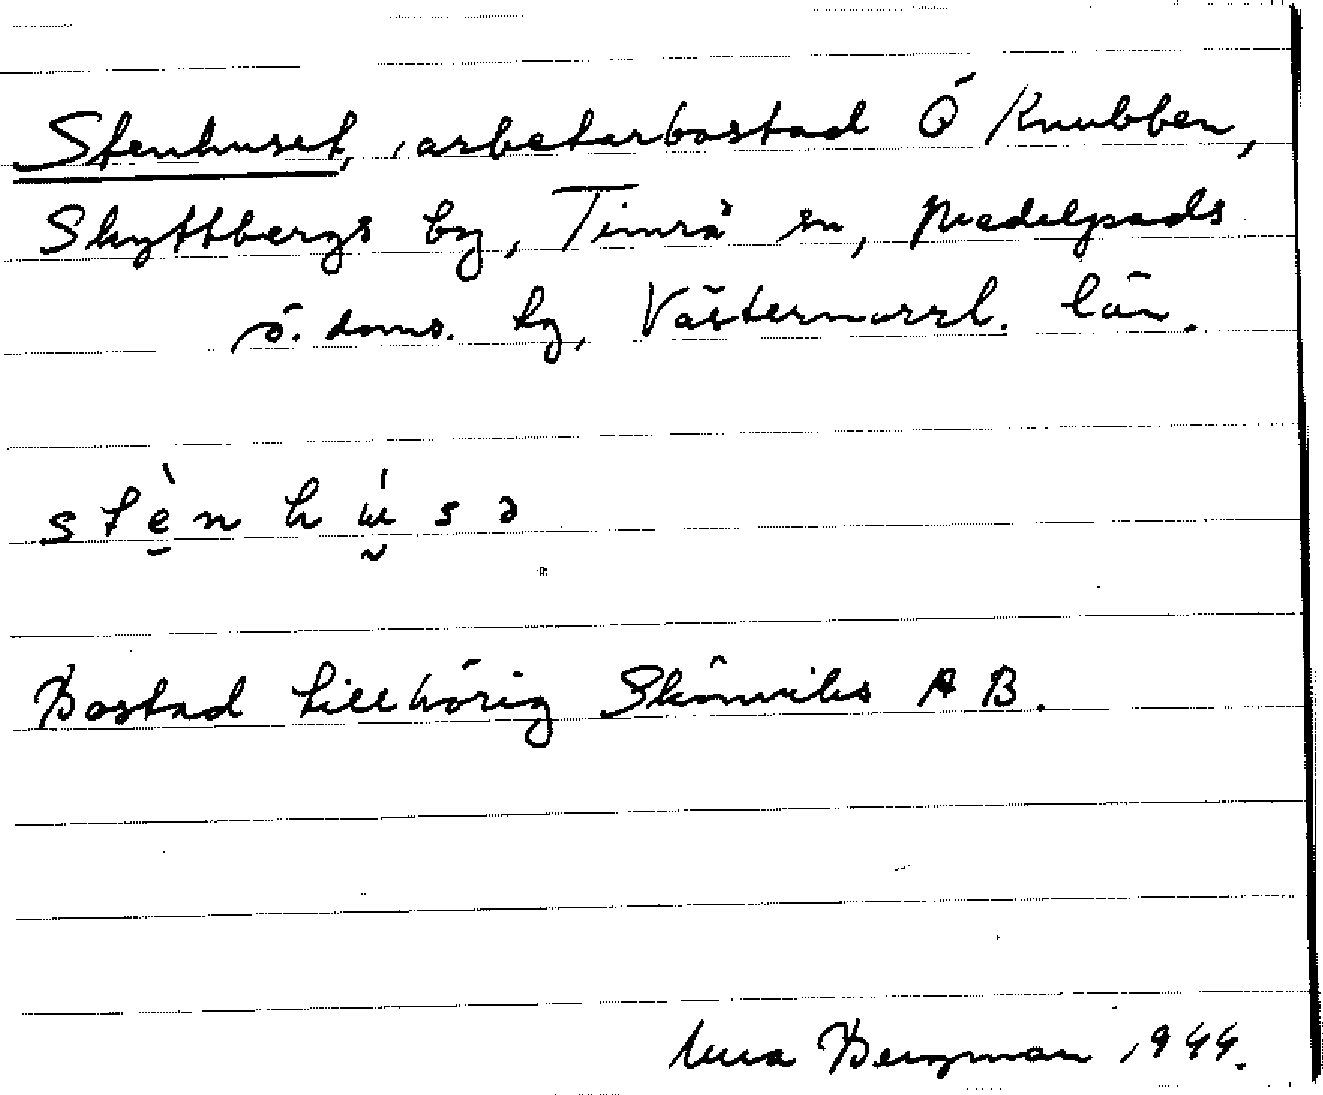 Stenhuset, arbetarbostad Ö Knubben,
Skyttbergs by, Timrå sn, Medelpads
ö. doms. hg, Västernorrl. län.
stènhúsə
Bostad tillhörig Skönviks AB.
Bergman 1944.